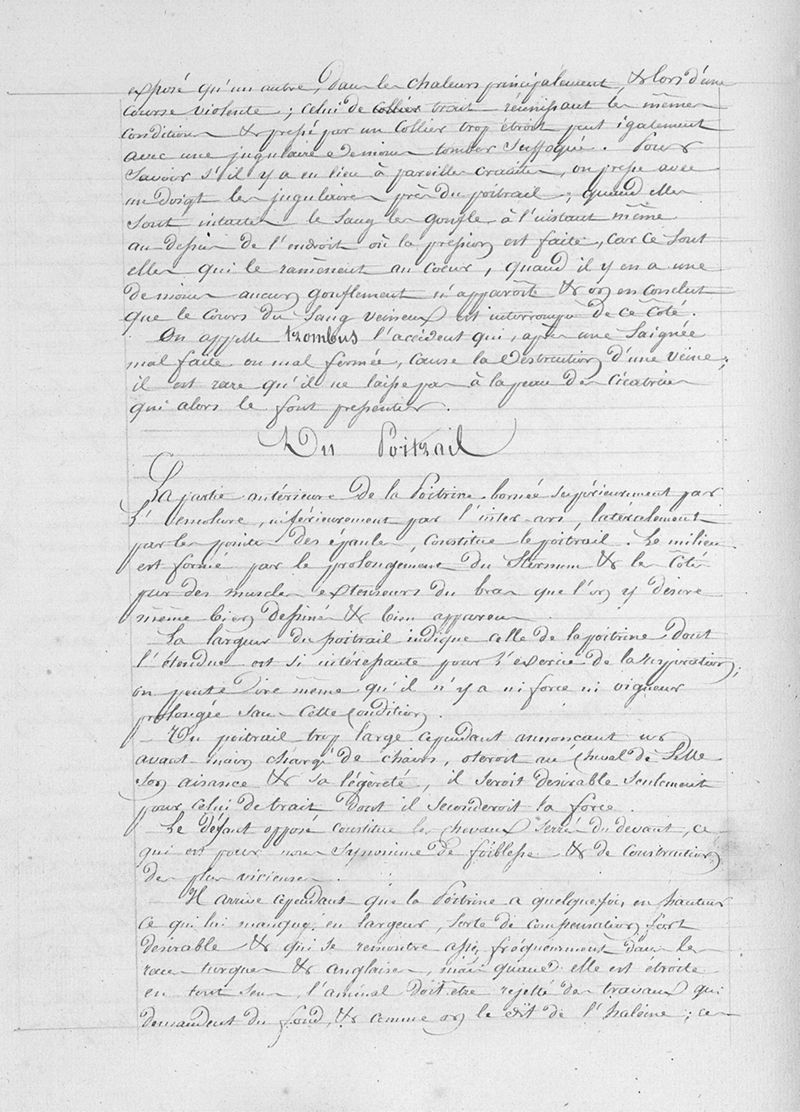 exposé qu'un autre, dans les chaleurs principalement, & lors d'une
course violente ; celui de collier trait réunissant les mêmes
conditions & pressé par un Collier trop étroit peut également
avec une jugulaire de moins tomber suffoqué. Pour
savoir s'il y a eu lieu à pareilles craintes, on presse avec
un doigt les jugulaires près du poitrail ; quand elles
sont intactes le sang les gonfle à l'instant même
au dessus de l'endroit où la pression est faite, car ce sont
elles qui le ramènent au Coeur, quand il y en a une
de moins aucun gonflement n'apparoît & on en conclut
que le cours du sang veineux est interrompu de ce côté.
On appelle trombus l'accident qui, après une Saignée
mal faite ou mal fermée, cause la destruction d'une veine ;
il est rare qu'il ne laisse pas à la peau des Cicatrices
qui alors le font pressentir.
Du Poitrail
La partie antérieure de la Poitrine bornée supérieurement par
L'Encolure, inférieurement par l'inter-ars, latéralement
par les pointes des épaules, constitue le poitrail. Le milieu
est formé par le prolongement du Sternum & les côtés
par des muscles extenseurs du bras que l'on y désire
même bien dessinés & bien apparens
La largeur du poitrail indique celle de la poitrine dont
l'étendue est si intéressante pour l'exercice de la respiration ;
on peut dire même qu'il n'y a ni force ni vigueur
prolongée sans Cette Condition.
Un poitrail trop large cependant annonçant un
avant main chargé de chairs, oteroit au Cheval de Selle
son aisance & sa légèreté, il seroit desirable seulement
pour celui de trait dont il seconderoit la force.
Le défaut opposé constitue les chevaux serrés du devant, ce
qui est pour nous synonime de foiblesse & de Construction
des plus vicieuses.
Il arrive cependant que la Poitrine a quelquefois en hauteur
ce qui lui manque en largeur, sorte de compensation fort
desirable & qui se rencontre assez fréquemment dans les
races turques & anglaises, mais quand elle est étroite
en tout sens, l'animal doit être rejetté des travaux qui
demandent du fond, & comme on le dit de l'haleine ; ces